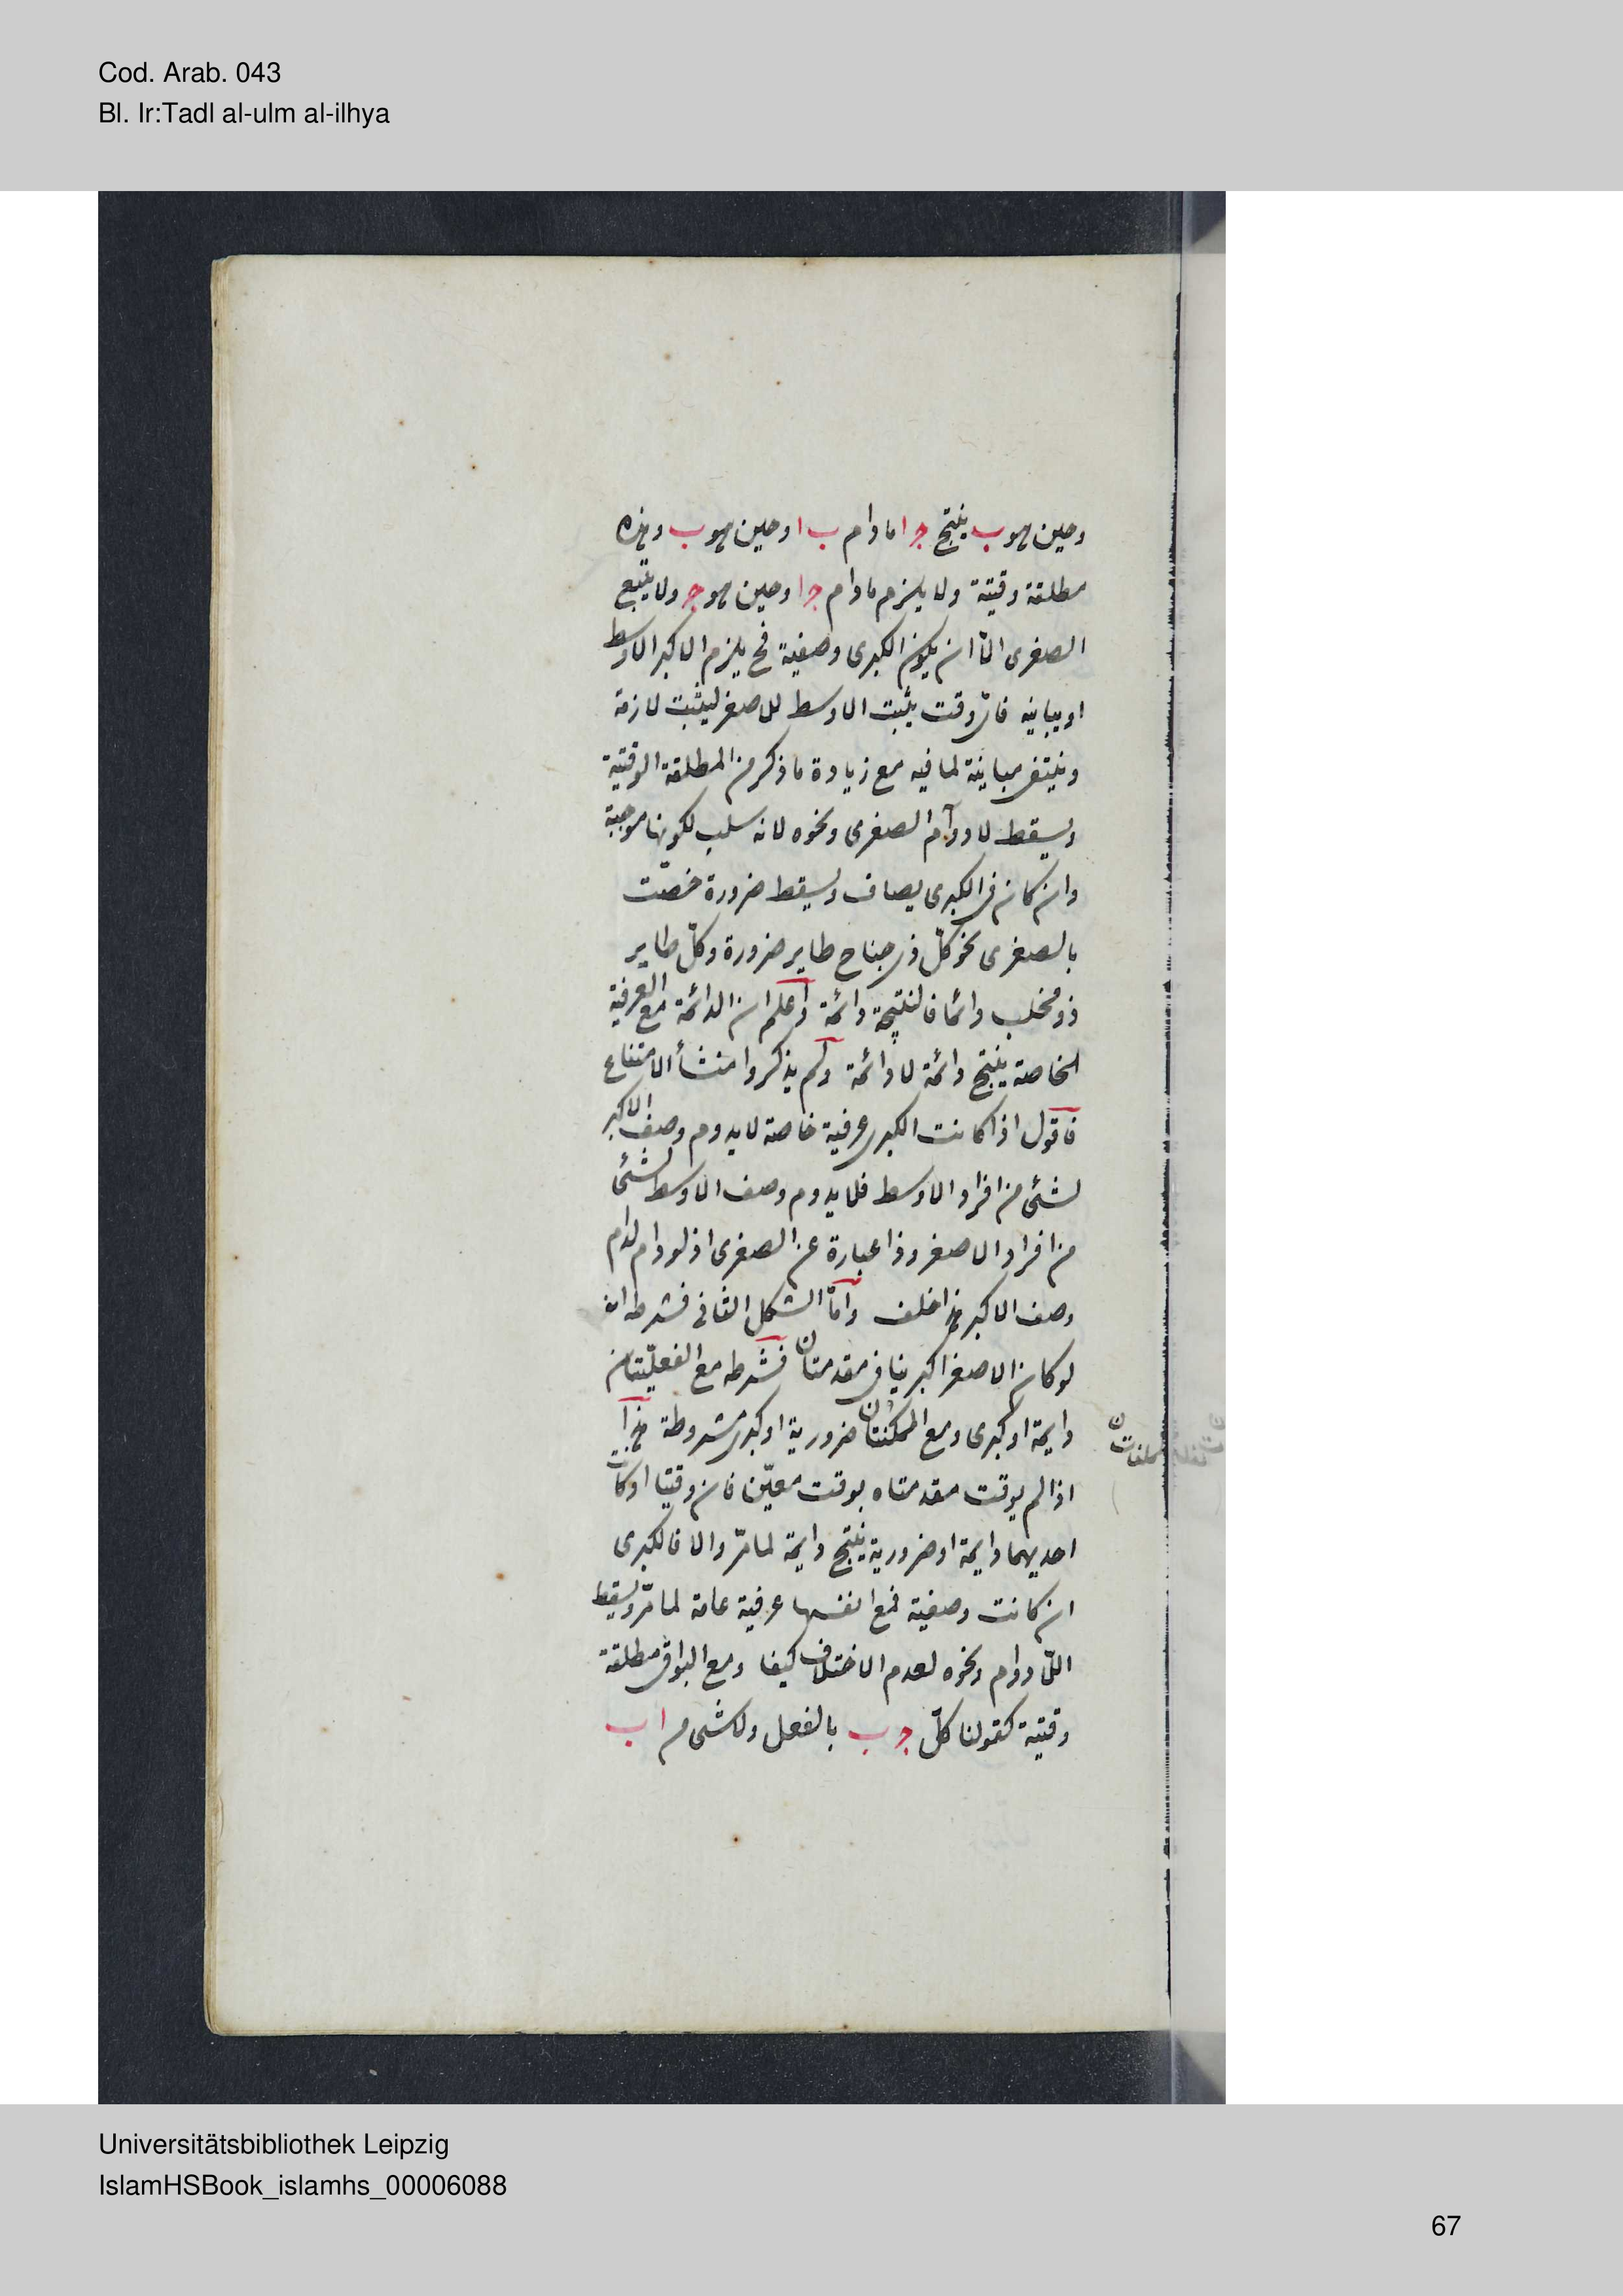 Cod. Arab. 043
Bl. Ir:Tadl al-ulm al-ilhya
وحين هو ب ينتج ج ا ما دام ب ا وحين هو ب وهذه
مطلقة وقتية ولا يلزم ما دام ج ا وحين هو ج ولا يتبع
الصغرى الّا ان يكون الكبرى وصفية فح يلزم الاكبر الاوسط
او يباينه فاىّ وقت يثبت الاوسط للاصغر ليثبت لازمة
وينتفى مباينة لما فيه مع زيادة ما ذكر من المطلقة الوقتية
ويسقط لا دوام الصغرى ونحوه لانه سلب لكونها موجبة
وان كان فى الكبرى يضاف ويسقط ضرورة خصّت
بالصغرى نحو كلّ ذى جناح طاير ضرورة وكلّ طاير
ذو مخلب دائما فالنتيجة دائمة واعلم ان الدائمة مع العرفية
الخاصة ينتج دائمة لا دائمة ولم يذكروا منشأ الامتناع
فاقول اذا كانت الكبرى عرفية خاصة لا يدوم وصف الاكبر
لشئ من افراد الاوسط فلا يدوم وصف الاوسط لشئ
من افراد الاصغر وذا عبارة عن الصغرى اذ لو دام لدام
وصف الاكبر هذا خلف وامّا الشكل الثانى فشرطه انه
لو كان الاصغر اكبر ينافى مقدمتان فشرطه مع الفعليّتان
دايمة او كبرى ومع الممكنتان ضرورية او كبرى مشروطة هذا
اذا لم يوقت مقدمتاه بوقت معيّن فان وقتيا او كانت
احديهما دايمة او ضرورية ينتج دايمة لما مرّ والا فالكبرى
ان كانت وصفية فمع انفسها عرفية عامة لما مرّ ويسقط
اللّا دوام ونحوه لعدم الاختلاف كيفا ومع البواقى مطلقة
وقتية كقولنا كلّ ج ب بالفعل ولا شى من ا ب
Universitätsbibliothek Leipzig
IslamHSBook_islamhs_00006088
67